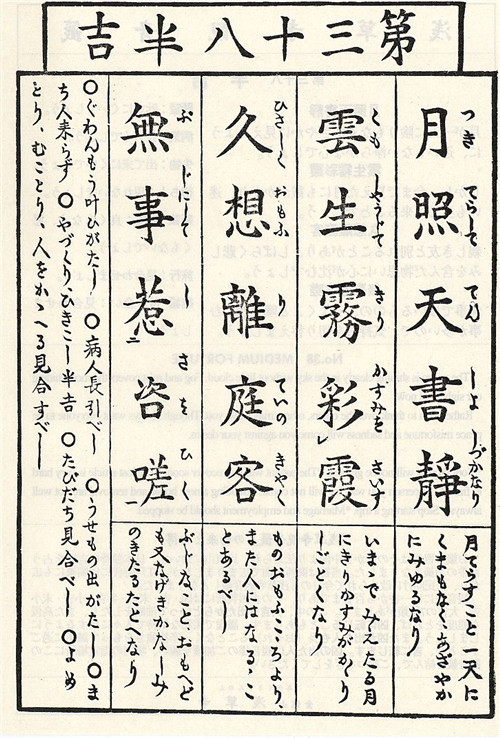 第三十八半吉
月照天書靜
つき てらして てん しよ しづかなり
月てらすこと一天に
くまもなくあざやか
にみゆるなり
雲生霧彩霞
いまゝで、みえたる月
にきりかすみがかゝり
しごとくなり
久想離庭客
ひさしく おもふ り ていの きやく
ものおもふころより
また人にはなるゝこ
とあるべし
無事惹咨嗟
ぶじなことゝおもへど
も又なげきかなしみ
のきたるたとへなり
〇ぐわんもう叶ひがたし 〇病人長引べし 〇うせもの出がたし 〇ま
ち人来らず 〇やづくりひきこし半吉 〇たびだち見合べし 〇よめ
とり、むことり、人をかゝへる見合すべし